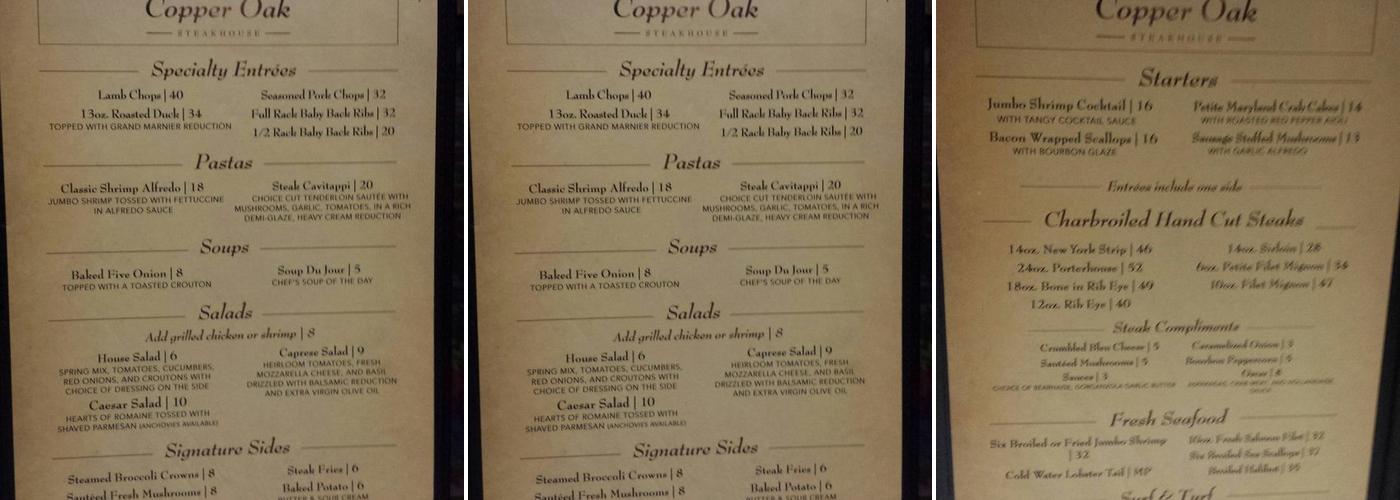 Copper Oak
STEAKHOUSE
Specialty Entrées
Lamb Chops | 40
13oz. Roasted Duck | 34
TOPPED WITH GRAND MARNIER REDUCTION
Seasoned Pork Chops | 32
Full Rack Baby Back Ribs | 32
1/2 Rack Baby Back Ribs | 20
Pastas
Classic Shrimp Alfredo | 18
JUMBO SHRIMP TOSSED WITH FETTUCCINE
IN ALFREDO SAUCE
Steak Cavitappi | 20
CHOICE CUT TENDERLOIN SAUTÉE WITH
MUSHROOMS, GARLIC, TOMATOES, IN A RICH
DEMI-GLAZE, HEAVY CREAM REDUCTION
Soups
Baked Five Onion | 8
TOPPED WITH A TOASTED CROUTON
Soup Du Jour | 5
CHEF'S SOUP OF THE DAY
Salads
Add grilled chicken or shrimp | 8
House Salad | 6
SPRING MIX, TOMATOES, CUCUMBERS,
RED ONIONS, AND CROUTONS WITH
CHOICE OF DRESSING ON THE SIDE
Caesar Salad | 10
HEARTS OF ROMAINE TOSSED WITH
SHAVED PARMESAN (ANCHOVIES AVAILABLE)
Caprese Salad | 9
HEIRLOOM TOMATOES, FRESH
MOZZARELLA CHEESE, AND BASIL
DRIZZLED WITH BALSAMIC REDUCTION
AND EXTRA VIRGIN OLIVE OIL
Signature Sides
Steamed Broccoli Crowns | 8
Sautéed Fresh Mushrooms | 8
Steak Fries | 6
Baked Potato | 6
BUTTER & SOUR CREAM
Copper Oak
STEAKHOUSE
Specialty Entrées
Lamb Chops | 40
13oz. Roasted Duck | 34
TOPPED WITH GRAND MARNIER REDUCTION
Seasoned Pork Chops | 32
Full Rack Baby Back Ribs | 32
1/2 Rack Baby Back Ribs | 20
Pastas
Classic Shrimp Alfredo | 18
JUMBO SHRIMP TOSSED WITH FETTUCCINE
IN ALFREDO SAUCE
Steak Cavitappi | 20
CHOICE CUT TENDERLOIN SAUTÉE WITH
MUSHROOMS, GARLIC, TOMATOES, IN A RICH
DEMI-GLAZE, HEAVY CREAM REDUCTION
Soups
Baked Five Onion | 8
TOPPED WITH A TOASTED CROUTON
Soup Du Jour | 5
CHEF'S SOUP OF THE DAY
Salads
Add grilled chicken or shrimp | 8
House Salad | 6
SPRING MIX, TOMATOES, CUCUMBERS,
RED ONIONS, AND CROUTONS WITH
CHOICE OF DRESSING ON THE SIDE
Caesar Salad | 10
HEARTS OF ROMAINE TOSSED WITH
SHAVED PARMESAN (ANCHOVIES AVAILABLE)
Caprese Salad | 9
HEIRLOOM TOMATOES, FRESH
MOZZARELLA CHEESE, AND BASIL
DRIZZLED WITH BALSAMIC REDUCTION
AND EXTRA VIRGIN OLIVE OIL
Signature Sides
Steamed Broccoli Crowns | 8
Sautéed Fresh Mushrooms | 8
Steak Fries | 6
Baked Potato | 6
BUTTER & SOUR CREAM
Copper Oak
STEAKHOUSE
Starters
Jumbo Shrimp Cocktail | 16
WITH TANGY COCKTAIL SAUCE
Bacon Wrapped Scallops | 16
WITH BOURBON GLAZE
Petite Maryland Crab Cakes | 14
WITH ROASTED RED PEPPER AIOLI
Sausage Stuffed Mushrooms | 13
WITH GARLIC ALFREDO
Entrées include one side
Charbroiled Hand Cut Steaks
14oz. New York Strip | 46
24oz. Porterhouse | 52
18oz. Bone in Rib Eye | 49
12oz. Rib Eye | 40
14oz. Sirloin | 28
6oz. Petite Filet Mignon | 36
10oz. Filet Mignon | 47
Steak Compliments
Crumbled Bleu Cheese | 5
Sautéed Mushrooms | 5
Sauces | 3
CHOICE OF BEARNAISE, GORGONZOLA GARLIC BUTTER
Caramelized Onion | 3
Bourbon Peppercorn | 5
Oscar | 8
Fresh Seafood
Six Broiled or Fried Jumbo Shrimp
| 32
Cold Water Lobster Tail | MP
10oz. Fresh Salmon Filet | 32
Six Broiled Sea Scallops | 37
Broiled Halibut |
Surf & Turf